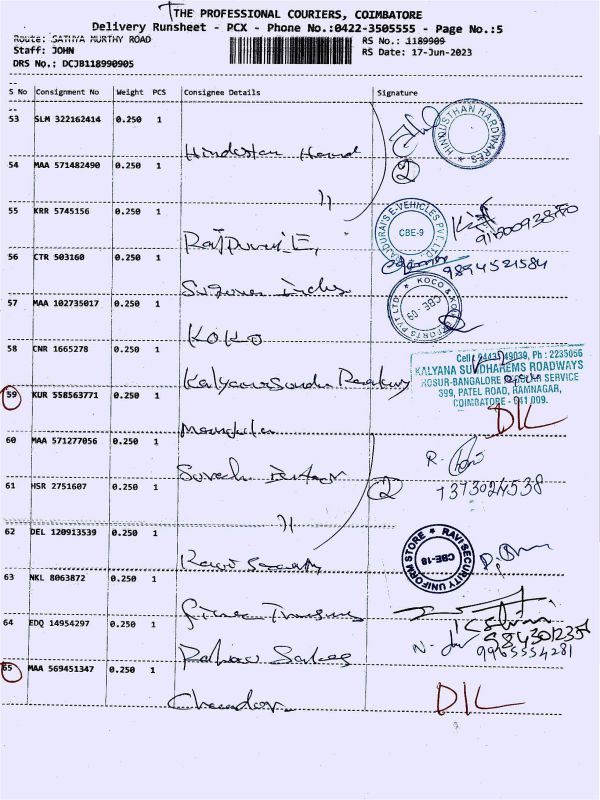 THE PROFESSIONAL COURIERS, COIMBATORE
Delivery Runsheet - PCX - Phone No.:0422-3505555 - Page No.:5
Route: SATHYA MURTHY ROAD
RS No.: 1189909
Staff: JOHN
RS Date: 17-Jun-2023
DRS No.: DCJB118990905
S No Consignment No Weight PCS Consignee Details Signature
53 SLM 322162414 0.250 1
Hindustan Hard
HINDUSTHAN HARDWARES
2
54 MAA 571482490 0.250 1
"
55 KRR 5745156 0.250 1
Rajdurai E,
E-VEHICLES PVT. LTD.
CBE-9
56 CTR 503160 0.250 1
9894521584
KOCO & KO
CBE - 09
57 MAA 102735017 0.250 1
KOKO
58 CNR 1665278 0.250 1
Cell: 9443149039, Ph : 2235056
KALYANA SUNDHAREMS ROADWAYS
HOSUR-BANGALORE SERVICE
399, PATEL ROAD, RAMNAGAR,
COIMBATORE - 641 009.
59 KUR 558563771 0.250 1
DIL
60 MAA 571277056 0.250 1
Suresh
R.
61 HSR 2751607 0.250 1
"
2
7373024538
62 DEL 120913539 0.250 1
Ravi Security
RAVI SECURITY UNIFORM STORE
CBE-18
63 NKL 8063872 0.250 1
64 EDQ 14954297 0.250 1
9965554281
65 MAA 569451347 0.250 1
DIL